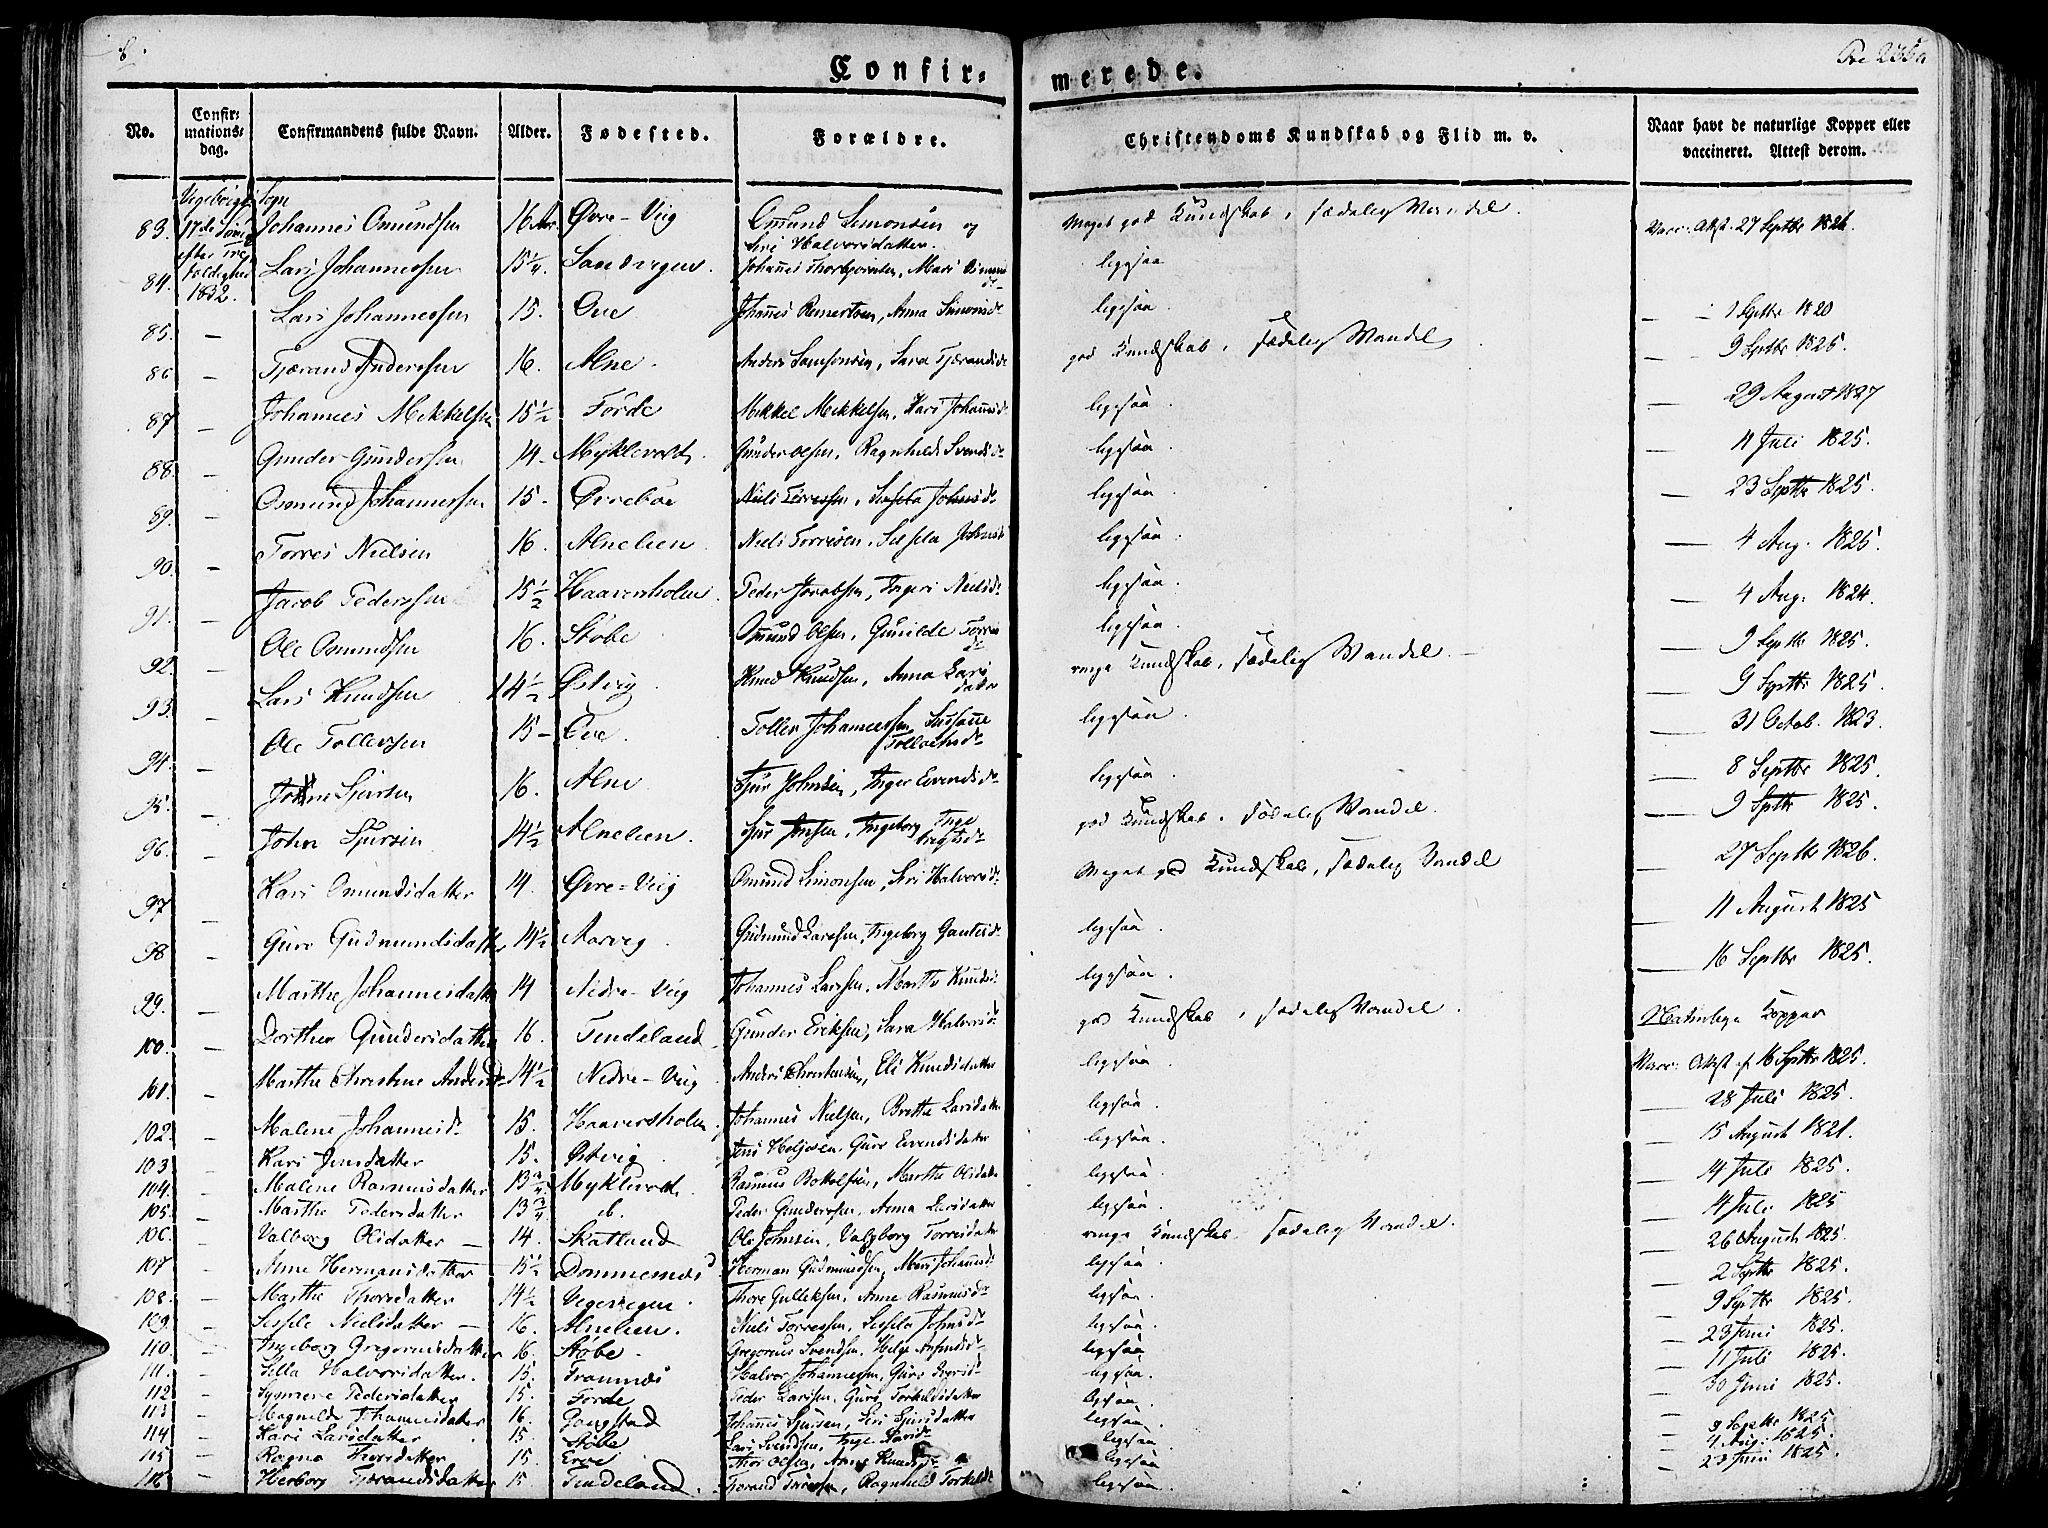 8.
Confir= merede.
No. Confir=mations=dag. Confirmandens fulde Navn. Alder. Fødested. Forældre. Christendoms Kundskab og Flid m. v. Naar havt de naturlige Kopper eller vaccineret. Attest derom.
Sogn
83. 17de Johannes Omundsen 16 Øvre-Viig Omund Simonsen og Siri Halvorsdatter. Meget god Kundskab, sædelig Vandel. Vacc: Attst. 27 Septbr 1826.
efter
84. 1832. Lars Johannessen 15¼ Sandvigen. Johannes Thorbjørnsen, Mari ligesaa
85. — Lars Johannessen 15. Ove Johannes Reinertsen, Anna Simonsdr ligesaa. — 1 Septbr 1820
86 — Tjærand Andersen 16. Alne. Anders Samsonsen, Sara Tjærandsdr god Kundskab, sædelig Vandel — 9 Septbr 1825.
87 — Johannes Mekkelsen 15½ Førde Mekkel Mekkelsen, Kari Johannesdr ligesaa. — 29 August 1827
88. — Gunder Gundersen 14. Myklevold. Gunder Olsen, Ragnhild Svendsdr ligesaa. — 11 Juli 1825.
89. — Osmund Johannessen 15. Ørrebøe Niels Torressen, Sesela Johnsdr ligesaa. — 23 Septbr 1825.
90. — Torres Nielsen 16. Alnelien. Niels Torresen, Sesela Johnsd ligesaa. — 4 Aug. 1825.
91. — Jacob Pedersen 15½ Haaversholm. Peder Jacobsen, Ingeri Nielsdr ligesaa. — 4 Aug. 1824.
92. — Ole Osmundsen 16. Støbe Osmund Olsen, Gunilde Torresdr ligesaa. — 9 Septbr 1825.
93. — Lars Knudsen 14½ Østvig. Knud Knudsen, Anna Larsdatter ringe Kundskab, sædelig Vandel. — 9 Septbr 1825.
94. — Ole Tollersen 15— Ove. Toller Johannessen, Susanne ligesaa. — 31 Octob. 1823.
95. — Sjursen 16. Alne Sjur Johnsen, Inger Evensdr ligesaa. — 8 Septbr 1825.
96. — John Sjursen 14½ Alnelien. Sjur Jensen, Ingeborg Ingebrigtsdr god Kundskab, sædelig Vandel. — 9 Septbr 1825.
97 — Kari Omundsdatter 14. Øvre-Viig Omund Simonsen, Siri Halvorsdr Meget god Kundskab, sædelig Vandel — 27 Septbr 1826.
98 — Guro Gudmundsdatter 14½ Aarvig. Gudmund Larsen, Ingeborg Gautesdr ligesaa. — 11 August 1825
99. — Marthe Johannesdatter 14 Nedre-Viig Johannes Larsen, Marthe Knudsd ligesaa. — 16 Septbr 1825.
100. — Dorthea Gundersdatter 16. Tendeland Gunder Eriksen, Sara Halvorsd god Kundskab, sædelig Vandel. Naturlige Kopper
101. — Marthe Christine Andersd 14½ Nedre-Viig Anders Christensen, Eli Knudsdatter ligesaa. Vacc: Attst af 16 Septbr 1825.
102. — Malene Johannesdr 15. Haaversholm Johannes Nielsen, Brethe Larsdatter ligesaa. — 28 Juli 1825.
103 — Kari Jensdatter 15. Østvig. Jens Heljesen, Guro Evensdatter ligesaa. — 15 August 1821.
104. — Malene Rasmusdatter 13¾ Myklevold. Rasmus Bottolfsen, Marthe Olsdatter ligesaa. — 14 Juli 1825.
105. — Marthe Pedersdatter 13¾ d. Peder Gundersen, Anna Larsdatter ligesaa. — 14 Juli 1825
106. — Valborg Olsdatter — 14. Skatland Ole Johnsen, Valgborg Torresdatter ringe Kundskab, sædelig Vandel. — 26 August 1825.
107 — Anne Hermansdatter 15½ Dommesnæs Herman Gudmundsen, Mari Johannesd ligesaa. — 2 Septbr 1825.
108. — Marthe Thoresdatter 14½ Vegevigen. Thore Gulleksen, Anne Rasmusdr ligesaa. — 9 Septbr 1825.
109 — Sesele Nielsdatter — 16. Alnelien. Niels Torressen, Sesela Johnsdr ligesaa. — 23 Juni 1825.
110. — Ingeborg Gregoriusdatter 16 Støbe. Gregorius Svendsen, Helge dr ligesaa — 11 Juli 1825.
111. — Silla Halvorsdatter. 15. Framnæs Halvor Johannessen, Guro ligesaa. — 30 Juni 1825.
112 — Synneve Pedersdatter 15. Førde Peder Larsen, Guro Torkildsdatter ligesaa.
113 — Magnild Johannesdatter 16. Johannes Sjursen, Siri Sjursdatter ligesaa. — 9 Septbr 1825
114 — Kari Larsdatter 15. Støbe Lars Svendsen, Inge Larsdr ligesaa — 4 Aug. 1825.
115 — Ragna Thorsdatter 15. Erve Thor Olsen, Anne Knudsdr ligesaa. — 23 Juni 1825.
116 — Herborg Tjærandsdatter 15 Tendeland. Tjærand Torressen, Ragnhild Torkildsdr ligesaa.